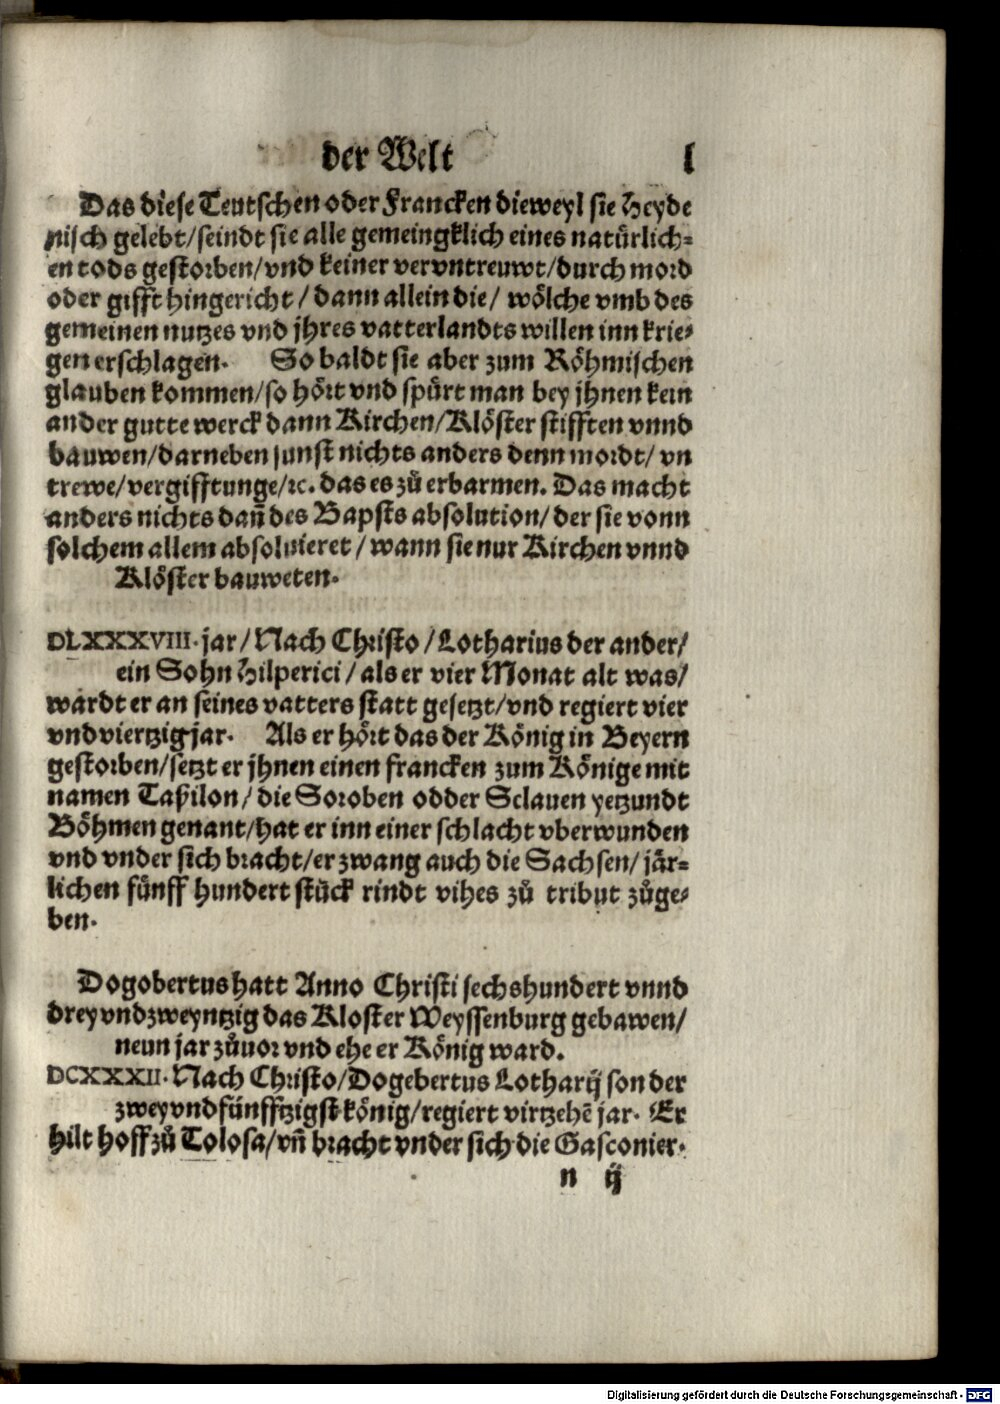 der Welt l
Das diese Teutschen oder Francken dieweyl sie Heyde
nisch gelebt/seindt sie alle gemeingklich eines natürlich-
en tods gestorben/vnd keiner vervntreuwt/durch mord
oder gifft hingericht/dann allein die/ wölche vmb des
gemeinen nutzes vnd jhres vatterlandts willen inn krie-
gen erschlagen. So baldt sie aber zum Röhmischen
glauben kommen/so hört vnd spürt man bey jhnen kein
ander gutte werck dann Kirchen/Klöster stifften vnnd
bauwen/darneben sunst nichts anders denn mordt/ vn
trewe/vergifftunge/ꝛc. das es zů erbarmen. Das macht
anders nichts dañ des Bapsts absolution/der sie vonn
solchem allem absoluieret/wann sie nur Kirchen vnnd
Klöster bauweten.
DLXXXVIII. jar/Nach Christo/Lotharius der ander/
ein Sohn Hilperici/als er vier Monat alt was/
wardt er an seines vatters statt gesetzt/vnd regiert vier
vnd viertzig jar. Als er hört das der König in Beyern
gestorben/setzt er jhnen einen francken zum Könige mit
namen Taßilon/die Soroben odder Sclauen yetzundt
Böhmen genant/hat er inn einer schlacht vberwunden
vnd vnder sich bracht/er zwang auch die Sachsen/jär-
lichen fünff hundert stück rindt vihes zů tribut zůge-
ben.
Dogobertus hatt Anno Christi sechshundert vnnd
drey vnd zweyntzig das Kloster Weyssenburg gebawen/
neun jar zůuor vnd ehe er König ward.
DCXXXII. Nach Christo/Dogebertus Lotharij son der
zwey vnd fünfftzigst könig/regiert virtzehē jar. Er
hilt hoff zů Tolosa/vñ bracht vnder sich die Gasconier.
n ij
Digitalisierung gefördert durch die Deutsche Forschungsgemeinschaft - DFG